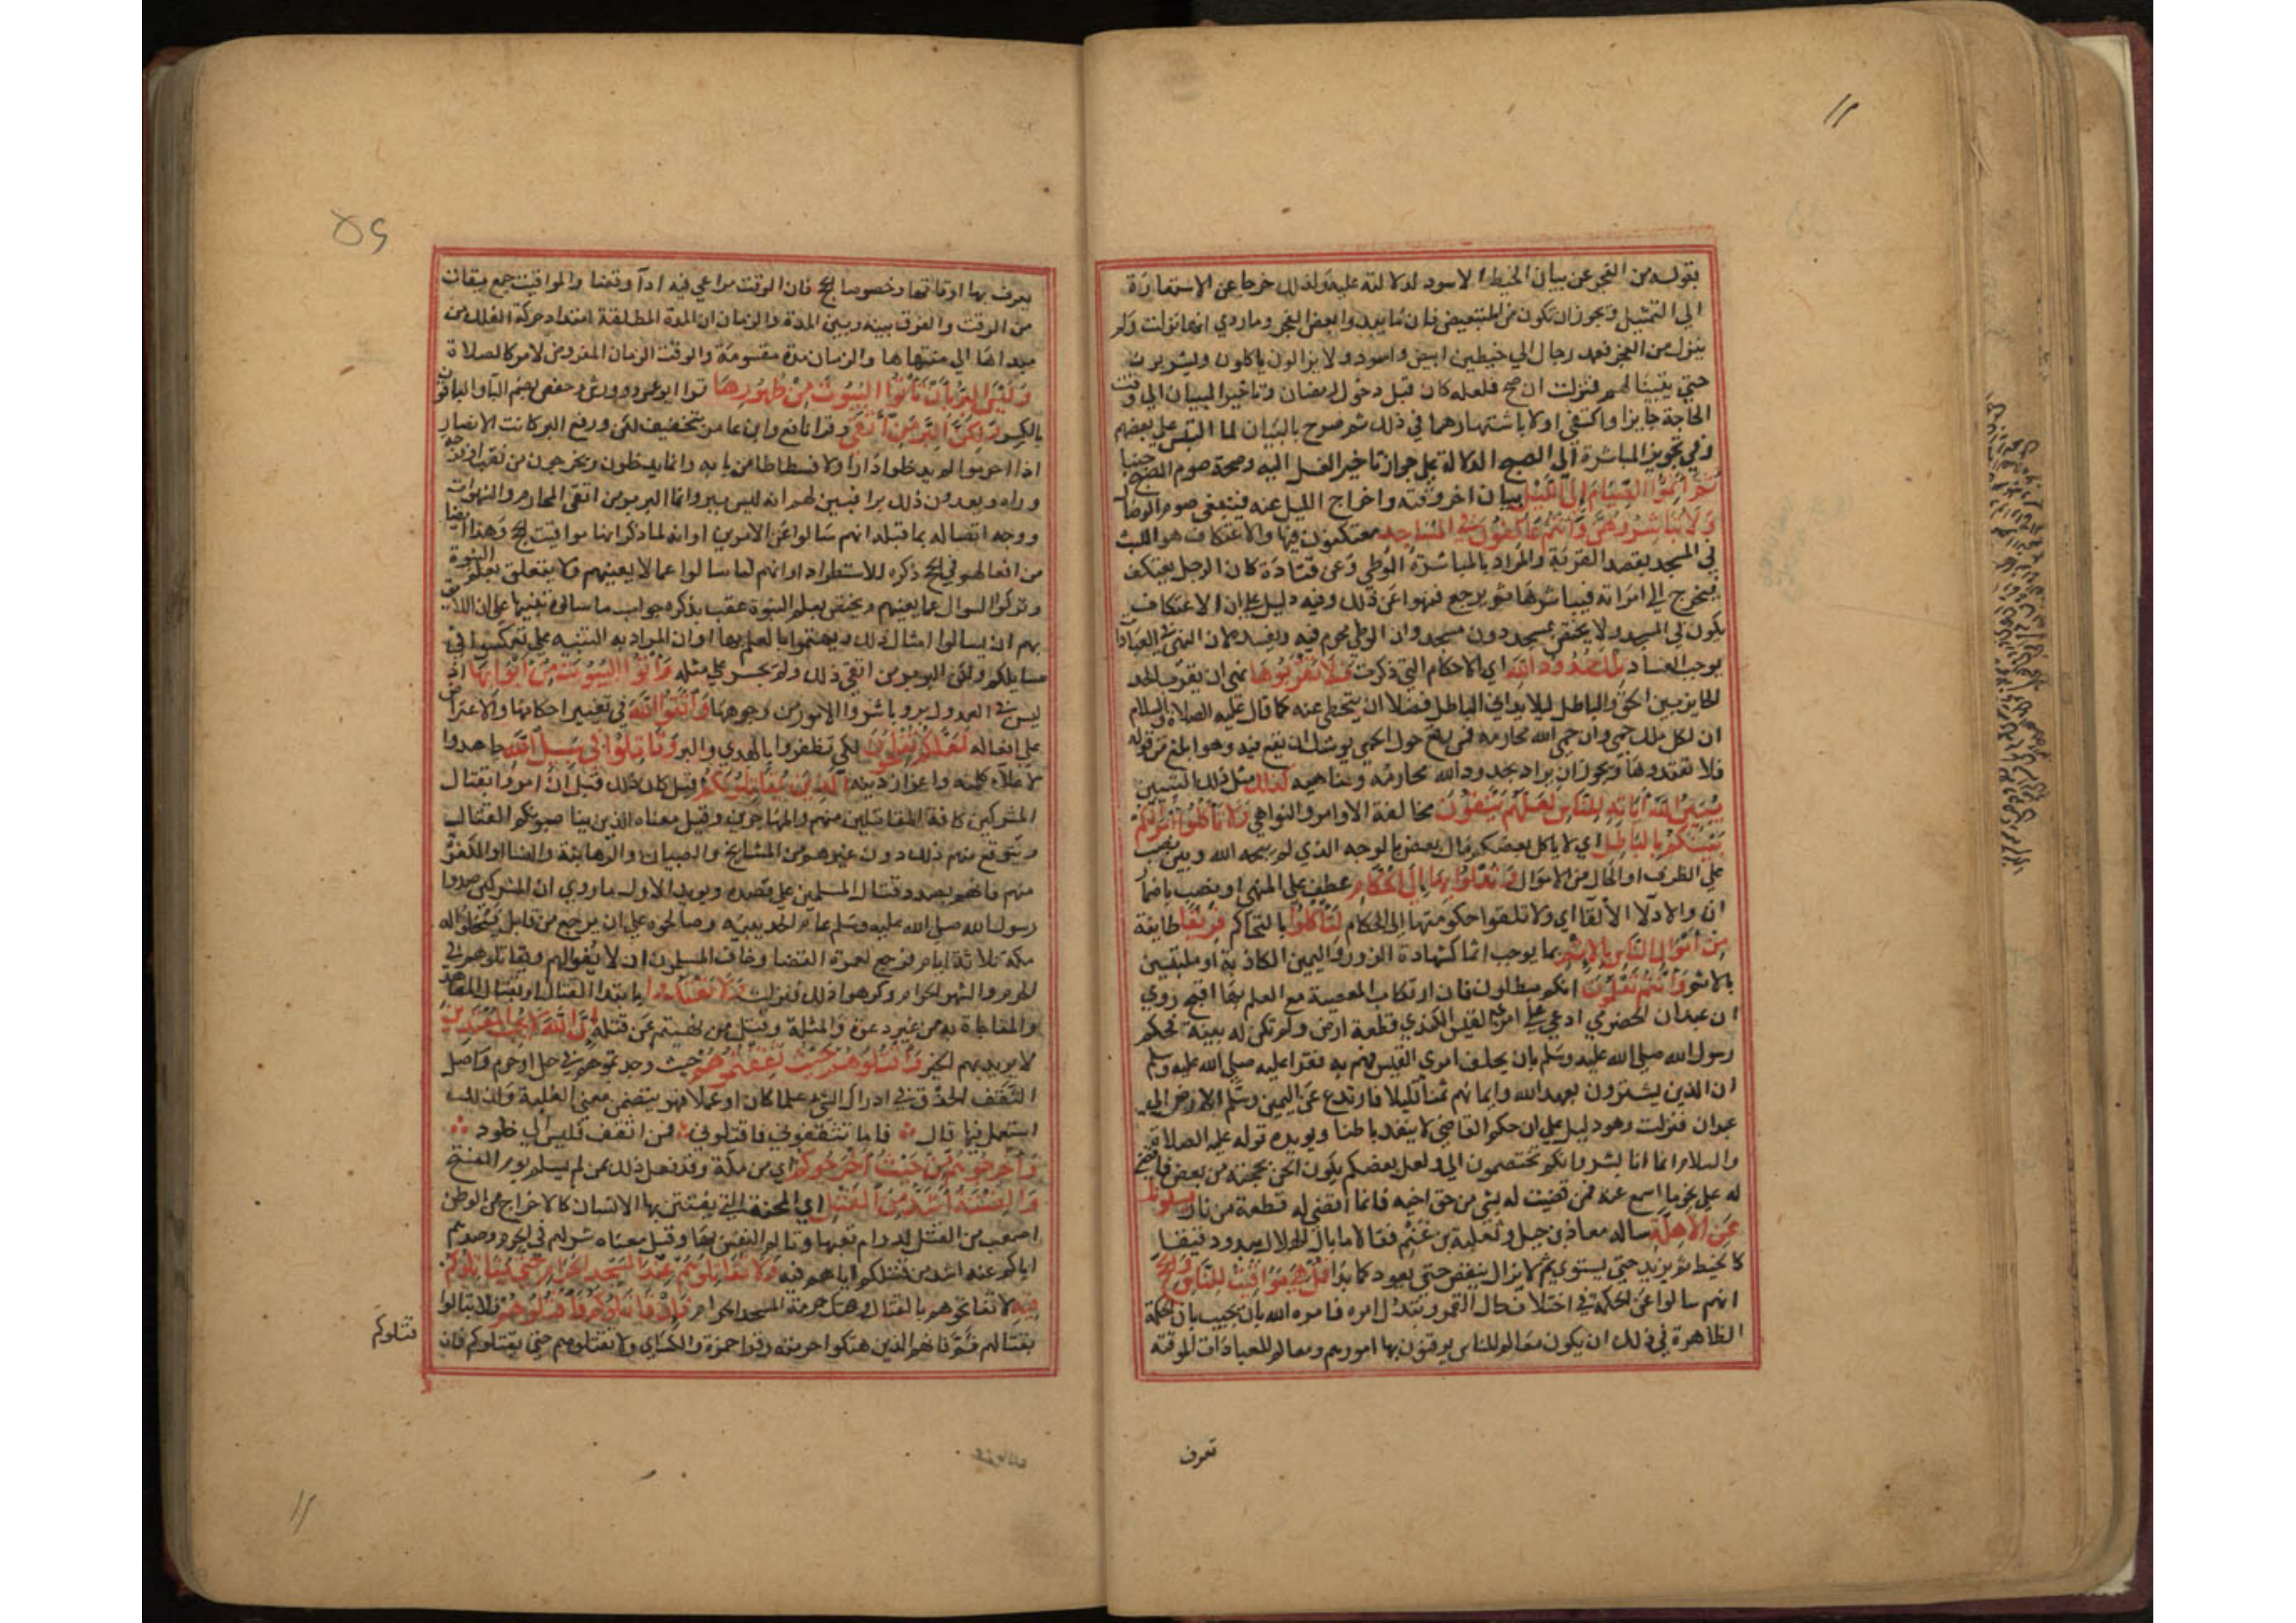 بقوله من الفجر عن بيان الخيط الاسود لدلالته عليه ولذلك خرجا عن الاستعارة
الي التمثيل ويجوز ان تكون من للتبعيض فان ما يبدوا بعض الفجر وما روي انها نزلت ولم
ينزل من الفجر فعمد رجال الي خيطين ابيض واسود ولا يزالون ياكلون ويشربون
حتي يتبينا لهم فنزلت ان صح فلعله كان قبل دخول رمضان وتاخير البيان الي وقت
الحاجة جايز او اكتفي اولا باشتهارهما في ذلك ثم صرح بالبيان لما التبس علي بعضهم
وفي تجويز المباشرة الي الصبح الدلالة علي جواز تاخير الغسل اليه وصحة صوم المصبح جنبا
ثُمَّ اَتِمُّوا الصِّيَامَ اِلَى اللَّيْلِ بيان اخر وقته واخراج الليل عنه فينتفي صوم الوصال
وَلَا تُبَاشِرُوهُنَّ وَاَنْتُمْ عَاكِفُونَ فِي المَسَاجِدِ معتكفون فيها والاعتكاف هو اللبث
في المسجد بقصد القربة والمراد بالمباشرة الوطي وعن قتادة كان الرجل يعتكف
فيخرج الي امراته فيباشرها ثم يرجع فنهوا عن ذلك وفيه دليل علي ان الاعتكاف
يكون في المسجد ولا يختص بمسجد دون مسجد وان الوطي محرم فيه ويفسده لان النهي في العبادات
يوجب الفساد تِلْكَ حُدُودُ اللهِ اي الاحكام التي ذكرت فَلَا تَقْرَبُوهَا نهي ان يقرب الحد
الحاجز بين الحق والباطل ليلا يداني الباطل فضلا ان يتخطي عنه كما قال عليه الصلاة والسلام
ان لكل ملك حمي وان حمي الله محارمه فمن رتع حول الحمي يوشك ان يقع فيه وهو ابلغ من قوله
فلا تعتدوها ويجوز ان يراد بحدود الله محارمه ومناهيه كذلك مثل ذلك التبيين
يُبَيِّنُ اللهُ اٰيَاتِهِ لِلنَّاسِ لَعَلَّهُمْ يَتَّقُونَ مخالفة الاوامر والنواهي وَلَا تَاْكُلُوا اَمْوَالَكُمْ
بَيْنَكُمْ بِالبَاطِلِ اي لا ياكل بعضكم مال بعض بالوجه الذي لم يبحه الله وبين نصب
علي الظرف او الحال من الاموال وَتُدْلُوا بِهَا اِلَى الحُكَّامِ عطف علي المنهي او نصب باضمار
ان والادلا الالقا اي ولا تلقوا حكومتها الي الحكام لِتَاْكُلُوا بالتحاكم فَرِيْقًا طايفة
مِنْ اَمْوَالِ النَّاسِ بِالاِثْمِ بما يوجب اثما كشهادة الزور واليمين الكاذبة او ملتبسين
بالاثم وَاَنْتُمْ تَعْلَمُونَ انكم مبطلون فان ارتكاب المعصية مع العلم بها اقبح روي
ان عبدان الحضرمي ادعي علي امرئ القيس الكندي قطعة ارض ولم تكن له بينة فحكم
رسول الله صلي الله عليه وسلم بان يحلف امرئ القيس فهم به فقرا عليه صلي الله عليه وسلم
ان الذين يشترون بعهد الله وايمانهم ثمنا قليلا فارتدع عن اليمين وسلم الارض الي
عبدان فنزلت وهو دليل علي ان حكم القاضي لا ينفد باطنا ويويده قوله عليه الصلاة
والسلام انما انا بشر وانكم تختصمون الي ولعل بعضكم يكون الحن بحجته من بعض فاقضي
له علي نحو ما اسمع عنه فمن قضيت له بشي من حق اخيه فانما اقضي له قطعة من نار يسئلونك
عَنِ الاَهِلَّةِ ساله معاذ بن جبل وثعلبة بن غنم فقالا ما بال الهلال يبدو دقيقا
كالخيط ثم يزيد حتي يستوي ثم لا يزال ينقص حتي يعود كما بدا قُلْ هِيَ مَوَاقِيْتُ لِلنَّاسِ وَالحَجِّ
انهم سالوا عن الحكمة في اختلاف حال القمر وتبدل امره فامره الله بان يجيب بان الحكمة
الظاهرة في ذلك ان يكون معالم للناس يوقتون بها امورهم ومعالم للعبادات الموقتة
تعرف
يعرف بها اوقاتها وخصوصا الحج فان الوقت مراعي فيه ادآ وقضا والمواقيت جمع ميقات
من الوقت والفرق بينه وبين المدة والزمان ان المدة المطلقة امتداد حركة الفلك من
مبداها الي منتهاها والزمان مدة مقسومة والوقت الزمان المفروض لامر كالصلاة
وَلَيْسَ البِرُّ بِاَنْ تَاْتُوا البُيُوتَ مِنْ ظُهُورِهَا قرا ابو عمرو وورش وحفص بضم البا والباقون
بالكسر وَلٰكِنَّ البِرَّ مَنِ اتَّقَى وقرا نافع وابن عامر بتخفيف لكن ورفع البر كانت الانصار
اذا احرموا لم يدخلوا دارا ولا فسطاطا من بابه وانما يدخلون ويخرجون من نقب او فرجة
وراه ويعدون ذلك برا فبين لهم انه ليس ببر وانما البر بر من اتقي المحارم والشهوات
ووجه اتصاله بما قبله انهم سالوا عن الامرين او انه لما ذكر انها مواقيت الحج وهذا ايضا
من افعالهم في الحج ذكره للاستطراد او انهم لما سالوا عما لا يعنيهم ولا يتعلق بعلم النبوة
وتركوا السوال عما يعنيهم ويختص بعلم النبوة عقب بذكره جواب ما سالوه تنبيها علي ان اللايق
بهم ان يسالوا امثال ذلك ويهتموا بالعلم بها او ان المراد به التنبيه علي تعكيسهم في
مسايلكم ولكن البر بر من اتقي ذلك ولم يجسر علي مثله وَاْتُوا البُيُوتَ مِنْ اَبْوَابِهَا اذ
ليس في العدول بر وباشروا الامور من وجوهها وَاتَّقُوا اللهَ في تغيير احكامها والاعتراض
علي افعاله لَعَلَّكُمْ تُفْلِحُونَ لكي تظفروا بالهدي والبر وَقَاتِلُوا فِي سَبِيْلِ اللهِ جاهدوا
لاعلآء كلمته واعزاز دينه الَّذِيْنَ يُقَاتِلُونَكُمْ قيل كان ذلك قبل ان امروا بقتال
المشركين كافة المقاتلين منهم والمهاجرين وقيل معناه الذين يناصبونكم القتال
ويتوقع منهم ذلك دون غيرهم من المشايخ والصبيان والرهابنة والنسا او الكفرة
منهم فانهم بصدد قتال المسلمين علي قصده ويويد الاول ما روي ان المشركين صدوا
رسول الله صلي الله عليه وسلم عام الحديبيه وصالحوه علي ان يرجع من قابل فيخلوا له
مكة ثلاثة ايام فرجع لعمرة القضا وخاف المسلمون ان لا يفوا لهم ويقاتلوهم في
الحرم والشهر الحرام وكرهوا ذلك فنزلت وَلَا تَعْتَدُوا بابتدا القتال او بقتال المعاهد
والمفاجاة به من غير دعوة والمثلة وقتل من نهيتم عن قتله اِنَّ اللهَ لَا يُحِبُّ المُعْتَدِيْنَ
لا يريد بهم الخير وَاقْتُلُوهُمْ حَيْثُ ثَقِفْتُمُوهُمْ حيث وجدتموهم في حل او حرم واصل
الثقف الحذق في ادراك الشي علما كان او عملا فهو يتضمن معني الغلبة ولذلك
استعمل فيها قال فاما تثقفوني فاقتلوني فمن اثقف فليس الي خلود
وَاَخْرِجُوهُمْ مِنْ حَيْثُ اَخْرَجُوكُمْ اي من مكة وقد فعل ذلك بمن لم يسلم يوم الفتح
وَالفِتْنَةُ اَشَدُّ مِنَ القَتْلِ اي المحنة التي يفتتن بها الانسان كالاخراج من الوطن
اصعب من القتل لدوام تعبها وتالم النفس بها وقيل معناه شركهم في الحرم وصدهم
اياكم عنه اشد من قتلكم اياهم فيه وَلَا تُقَاتِلُوهُمْ عِنْدَ المَسْجِدِ الحَرَامِ حَتَّى يُقَاتِلُوكُمْ
فِيهِ لا تفاتحوهم بالقتال وهتك حرمة المسجد الحرام فَاِنْ قَاتَلُوكُمْ فَاقْتُلُوهُمْ فلا تبالوا
بقتالهم ثم فانهم الذين هتكوا حرمته وقرا حمزة والكسائي ولا تقتلوهم حتي يقتلوكم فان
قتلوكم